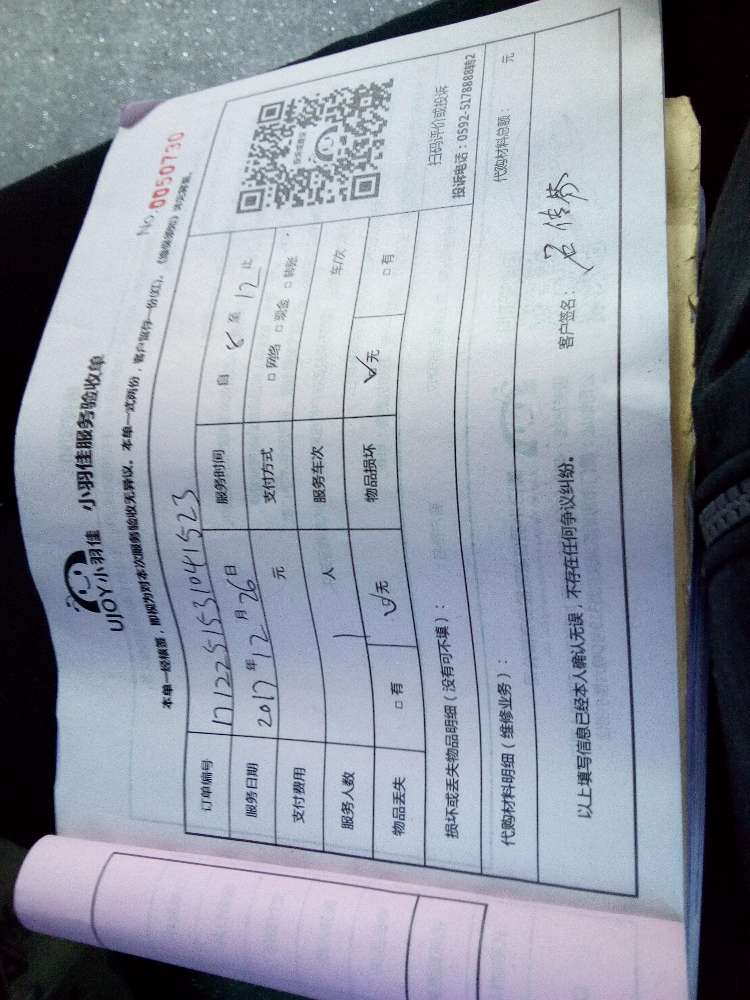 UJOY小羽佳 小羽佳服务验收单
No.0050730
本单一经填写，即视为对本次服务验收无异议。本单一式两份，客户留存一份(红)。
订单编号 1712251531041523
服务日期 2017年12月26日 服务时间 自8至12止
支付费用 元 支付方式 □网络 □现金 □转账
服务人数 1人 服务车次 车/次
物品丢失 □有 ☑无 物品损坏 ☑无 □有
扫码评价或投诉
投诉电话：0592-5178888转2
损坏或丢失物品明细（没有可不填）：
代购材料明细（维修业务）： 代购材料总额： 元
以上填写信息已经本人确认无误，不存在任何争议纠纷。 客户签名：